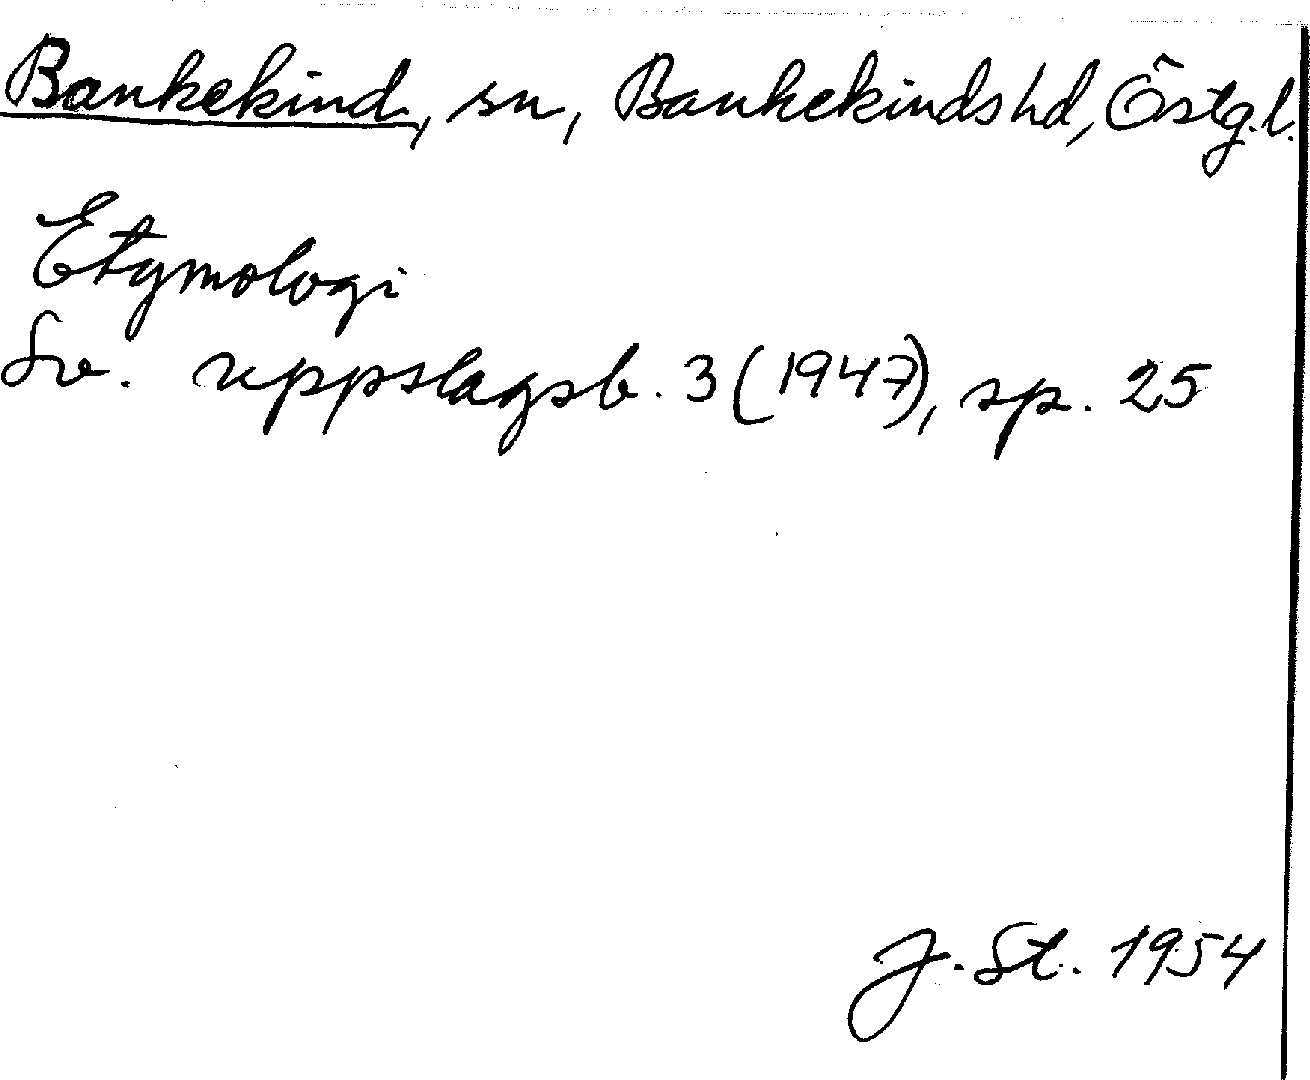 Bankekind, sn, Bankekinds hd, Östg.l.
Etymologi
Sv. uppslagsb. 3 (1947), sp. 25
J. St. 1954